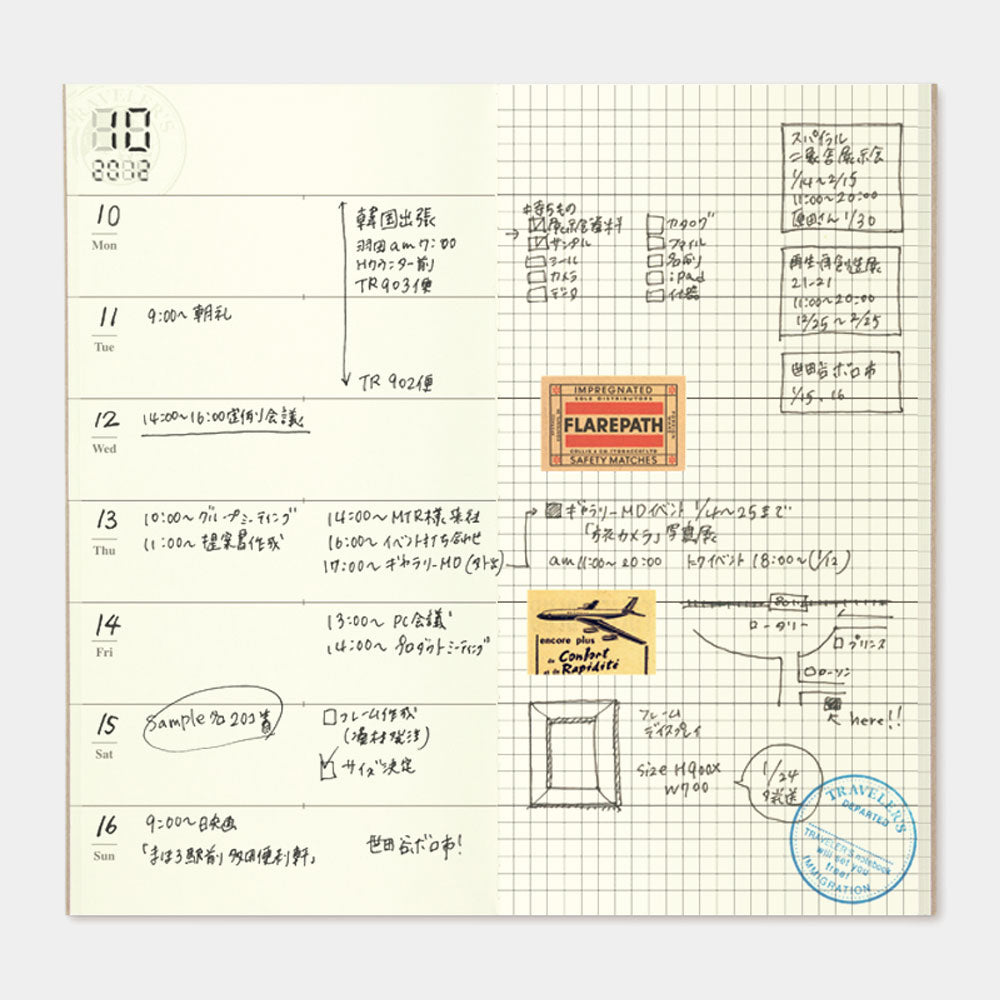 TRAVELER'S
10
2012
10
Mon
韓国出張
羽田am7:00
Hカウンター前
TR903便
11
Tue
9:00〜朝礼
TR 902便
12
Wed
14:00〜16:00定例会議
13
Thu
10:00〜グループミーティング
11:00〜提案書作成
14:00〜MTR様来社
16:00〜イベント打ち合わせ
17:00〜ギャラリーMD
14
Fri
13:00〜PC会議
14:00〜プロダクトミーティング
15
Sat
Sample
フレーム作成
サイズ決定
16
Sun
9:00〜映画
「まほろ駅前多田便利軒」
世田谷ボロ市!
持ちもの
展示会資料
サンプル
シール
カメラ
データ
カタログ
ファイル
名刺
iPad
什器
スパイラル
二艘舎展示会
1/14〜2/15
11:00〜20:00
原田さん1/30
再生・再創造展
21-21
11:00〜20:00
12/25〜2/25
世田谷ボロ市
1/15.16
IMPREGNATED
SOLE DISTRIBUTORS
FLAREPATH
COLLIS & CO. (TOBACCO) LTD
SAFETY MATCHES
ギャラリーMDイベント 1/4〜25まで
「旅カメラ」写真展
am11:00〜20:00 トークイベント 18:00〜(1/12)
encore plus
de Confort
et de Rapidité
ロータリー
プリンス
ローソン
here!!
フレーム
ディスプレイ
size H900×
W700
1/24
発送
TRAVELER'S
DEPARTED
TRAVELER'S notebook
will set you
free!
IMMIGRATION